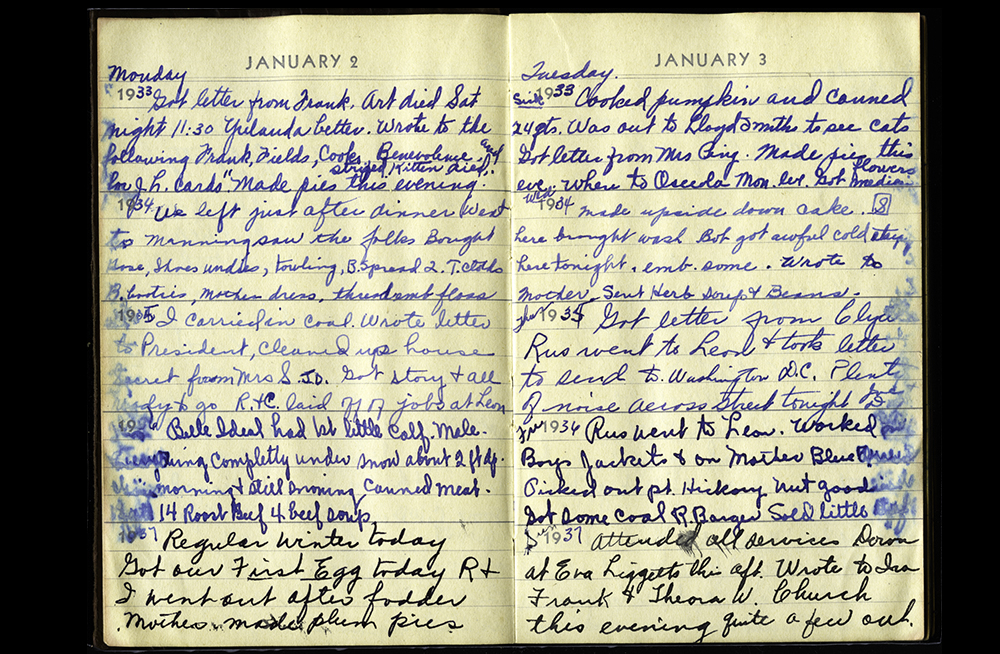 JANUARY 2
Monday
1933 Got letter from Frank. Art died Sat
night 11:30 Yulanda better. Wrote to the
following Frank, Fields, Cooks, Benevolence and
striped Kitten died.
for J.h. cards" Made pies this evening.
1934 We left just after dinner Went
to Manning saw the folks Bought
hose, shoes undies, towling, B. Spread 2. T. cloths
B. booties, mother dress, thread emb floss
1935 I carried in coal. Wrote letter
to President, cleaned up house
secret from Mrs S. J.D. Got story & all
to go R. & C. laid off of jobs at Leon
Belle Ideal had 1st little calf. Male.
Everything completly under snow about 2 ft dp.
morning & still snowing canned meat.
14 Roast Beef 4 beef soup
1937 Regular Winter today
Got our First Egg today R &
I went out after fodder
Mother made plum pies
JANUARY 3
Tuesday.
1933 Cooked pumpkin and canned
24 qts. Was out to Lloyd Smiths to see cats
Got letter from Mrs Ping. Made pies this
eve. Where to Osceola Mon. eve. Got flowers
Wed
1934 made upside down cake. S
here brought wash Bob got awful cold
here tonight. emb. some. Wrote to
mother. Sent Herb soup & Beans.
1935 Got letter from Clyde
Rus went to Leon & took letter
to send to Washington D.C. Plenty
of noise across street tonight
Fri 1936 Rus went to Leon. Worked
Boys Jackets & on Mother Blue
Picked out pt. Hickory nut goods
Got some coal R. Barger Sold little
1937 Attended all services Down
at Eva Liggetts this aft. Wrote to Ira
Frank & Theora W. Church
this evening quite a few out.